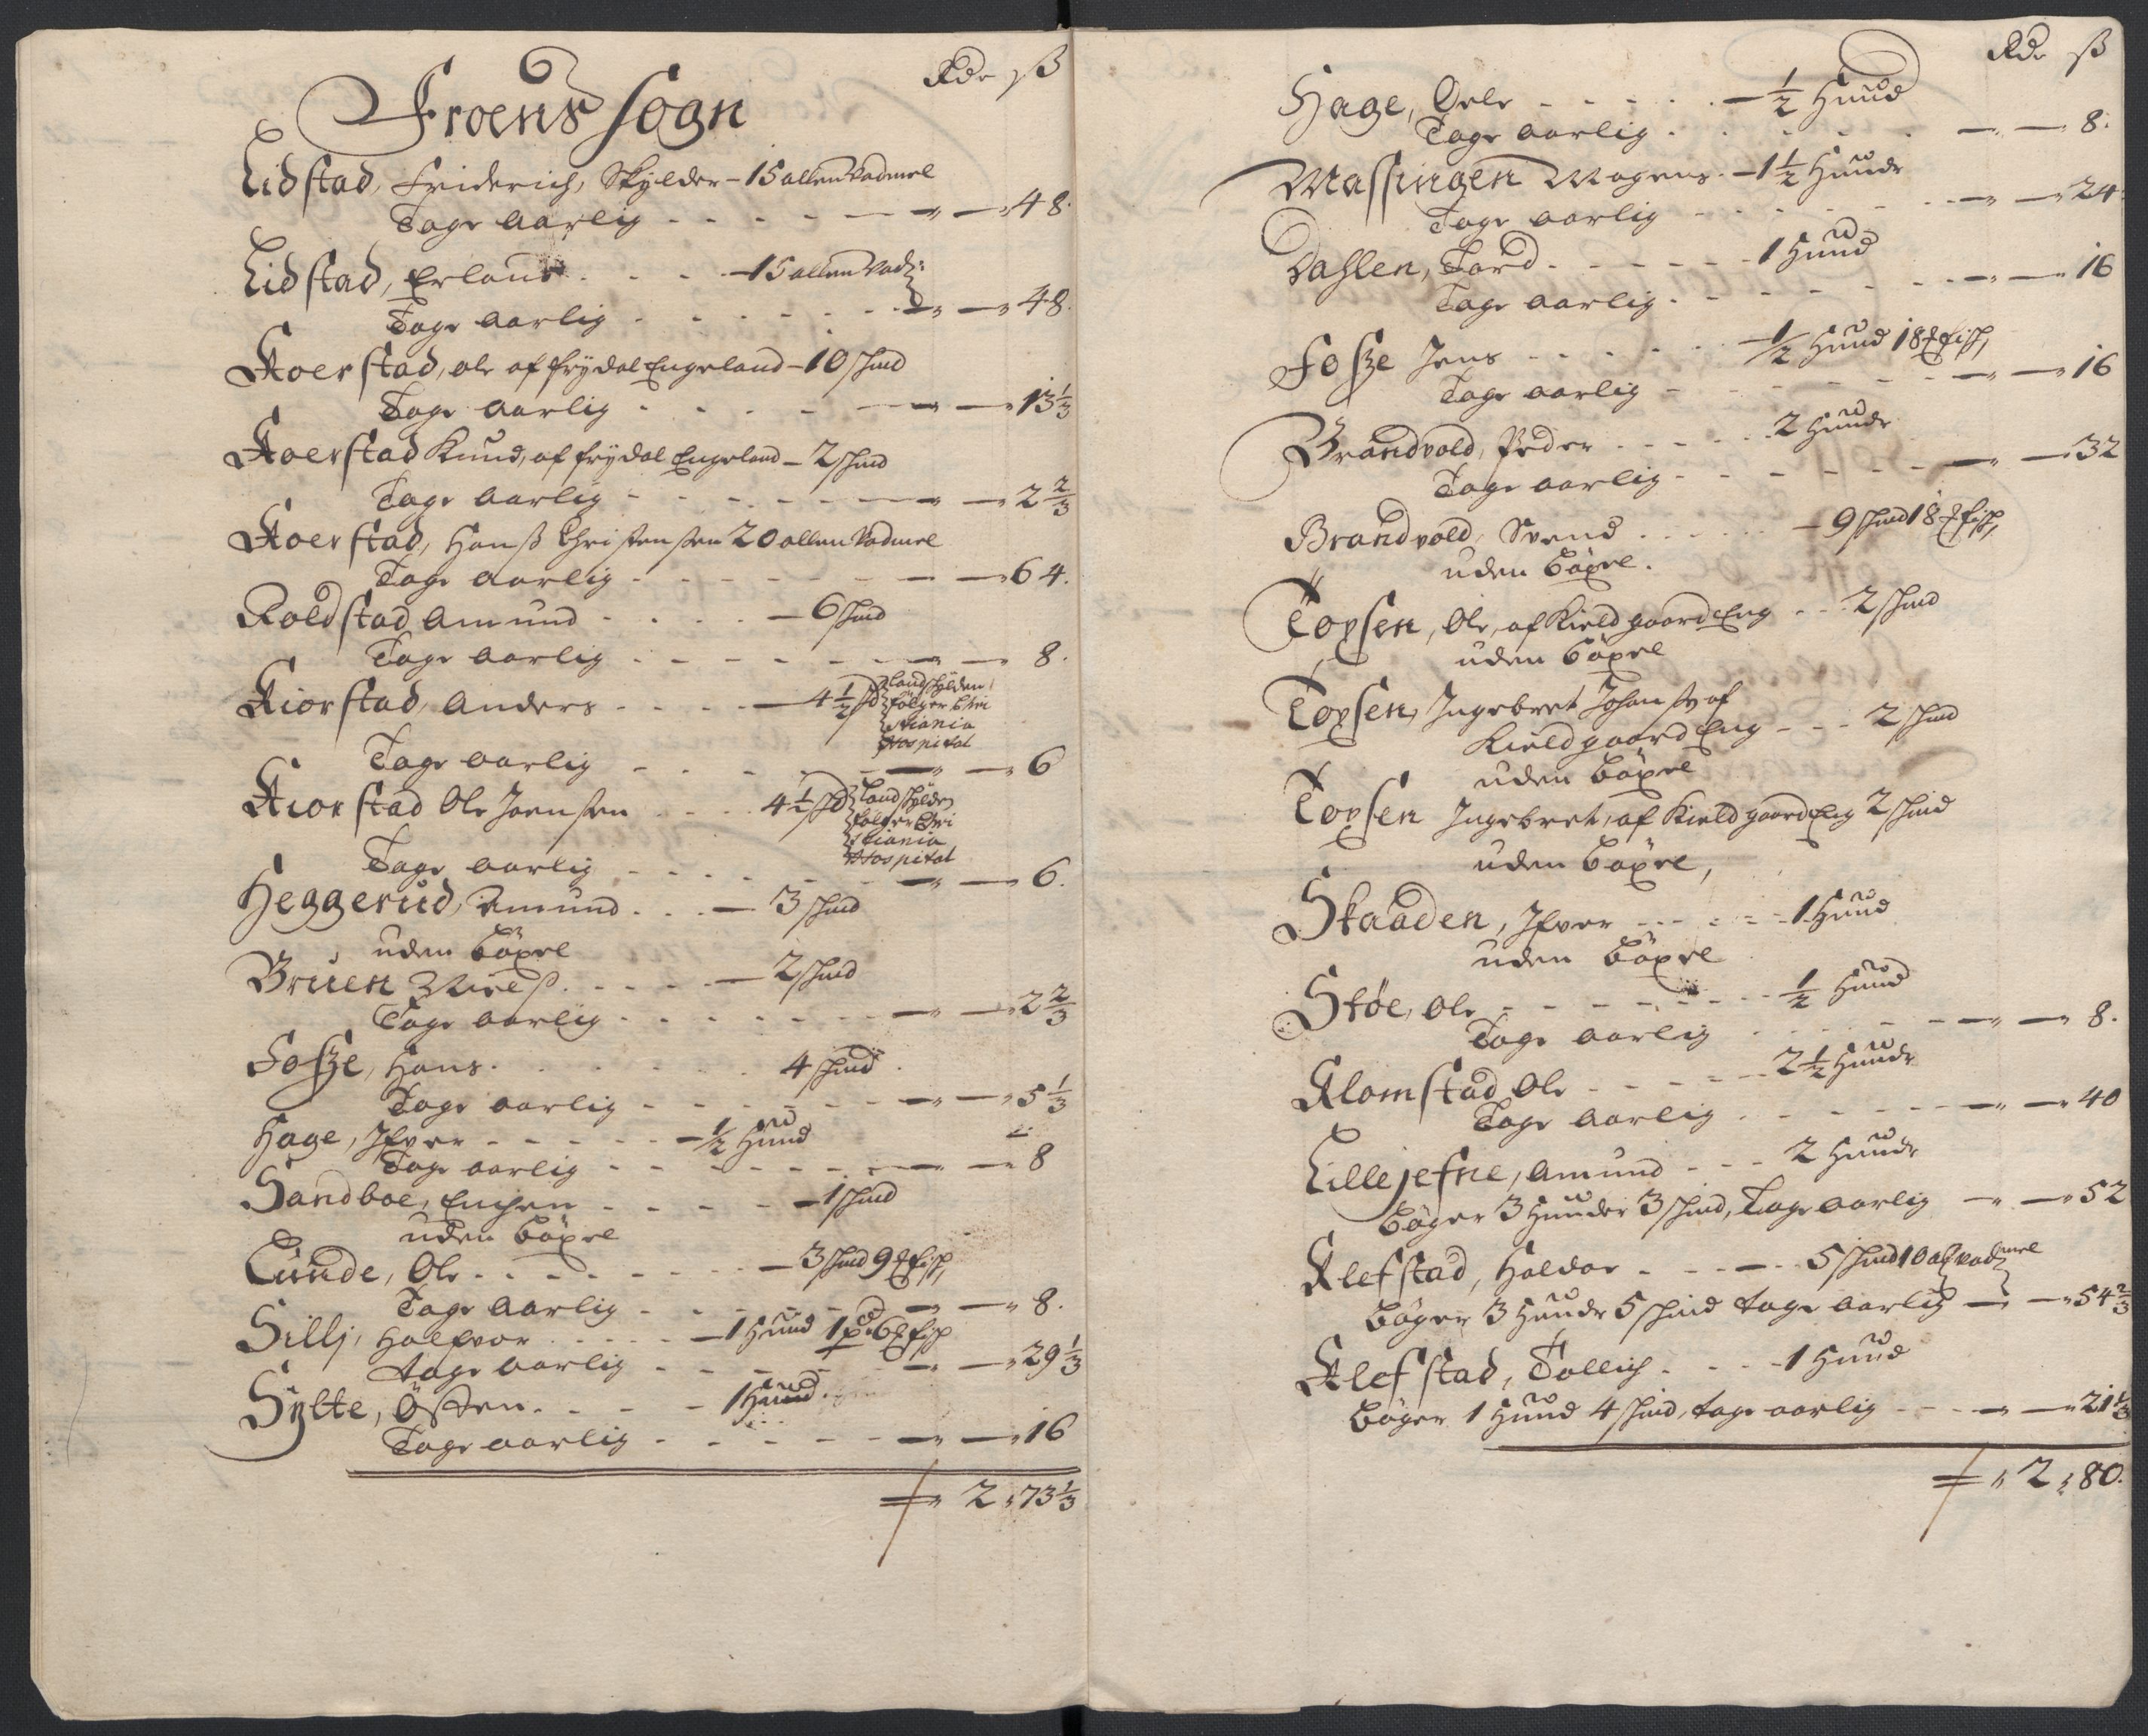 Rdr ß
Froens Sogn
Lidstad, Friderich, Skylder - 15 allen Vadmel
Tage Aarlig - - 48.
Lidstad, Erland - 15 allen Vad:
Tage Aarlig - - 48.
Koerstad, Ole af Frydal Engeland - 10 skind
Tage aarlig - - 13 1/3
Koerstad Knud, af Frydal Engeland - 2 skind
Tage Aarlig - - 2 2/3
Koerstad, Hanß Christensen 20 allen Vadmel
Tage aarlig - - 64.
Roldstad Amund - 6 skind
Tage aarlig - - 8.
Kiorstad, Anders - 4 1/2 ſd Landskylden
følger Chri
stiania
Hospital
Tage aarlig - - 6
Kiorstad Ole Joensen - 4 1/2 ſd Landskylden
følger Chri
stiania
Hospital
Tage aarlig - - 6.
Heggerud, Amund - 3 skind
uden böxel
Bruen Nielß - 2 skind
Tage aarlig - - 2 2/3
Foße, Hans - 4 skind
Tage aarlig - - 5 1/3
Hage, Ifver - 1/2 Hund
Tage aarlig - - 8
Sandboe, Encken - 1 skind
uden böxel
Lunde, Ole - 3 skind 9 ℔ fisk,
Tage aarlig - - 8.
Sillj, Halfvor - 1 Hund 1 pd 6 ℔ fisk
tage aarlig - - 29 1/3
Sylte, Östen - 1 Hund
Tage aarlig - - 16
2 " 73 1/3
Rdr ß
Hage, Oele - 1/2 Hund
Tage aarlig - - 8.
Massingen Mogens - 1 1/2 Hunde
Tage aarlig - - 24
Dahlen, Tord - 1 Hund
Tage aarlig - - 16
Foße Jens - 1/2 Hund 18 ℔ fisk,
Tage aarlig - - 16
Brandvold, Peder - 2 Hunde
Tage aarlig - - 32
Brandvold, Svend - 9 skind 18 ℔ fisk,
uden böxel.
Toxsen, Ole, af Kieldgaard Eng - 2 skind
uden böxel
Toxsen, Ingebret Johanß af
Kieldgaard Eng - 2 skind
uden böxel
Toxsen Ingebret, af Kieldgaard Eng 2 skind
uden böxel,
Skaaden, Ifver - 1 Hund
uden böxel
Støe, Ole - 1/2 Hund
Tage aarlig - - 8.
Klomstad Ole - 2 1/2 Hunde
Tage aarlig - - 40
Lillejefne, Amund - 2 Hunde
böger 3 Hunder 3 skind, Tage aarlig - - 52
Klefstad, Haldor - 5 skind 10 al: vadmel
böger 3 Hunde 5 skind tage aarlig - - 54 2/3
Klefstad, Tollich - 1 Hund
böger 1 Hund 4 skind, tage aarlig - - 21 1/3
2 " 80.